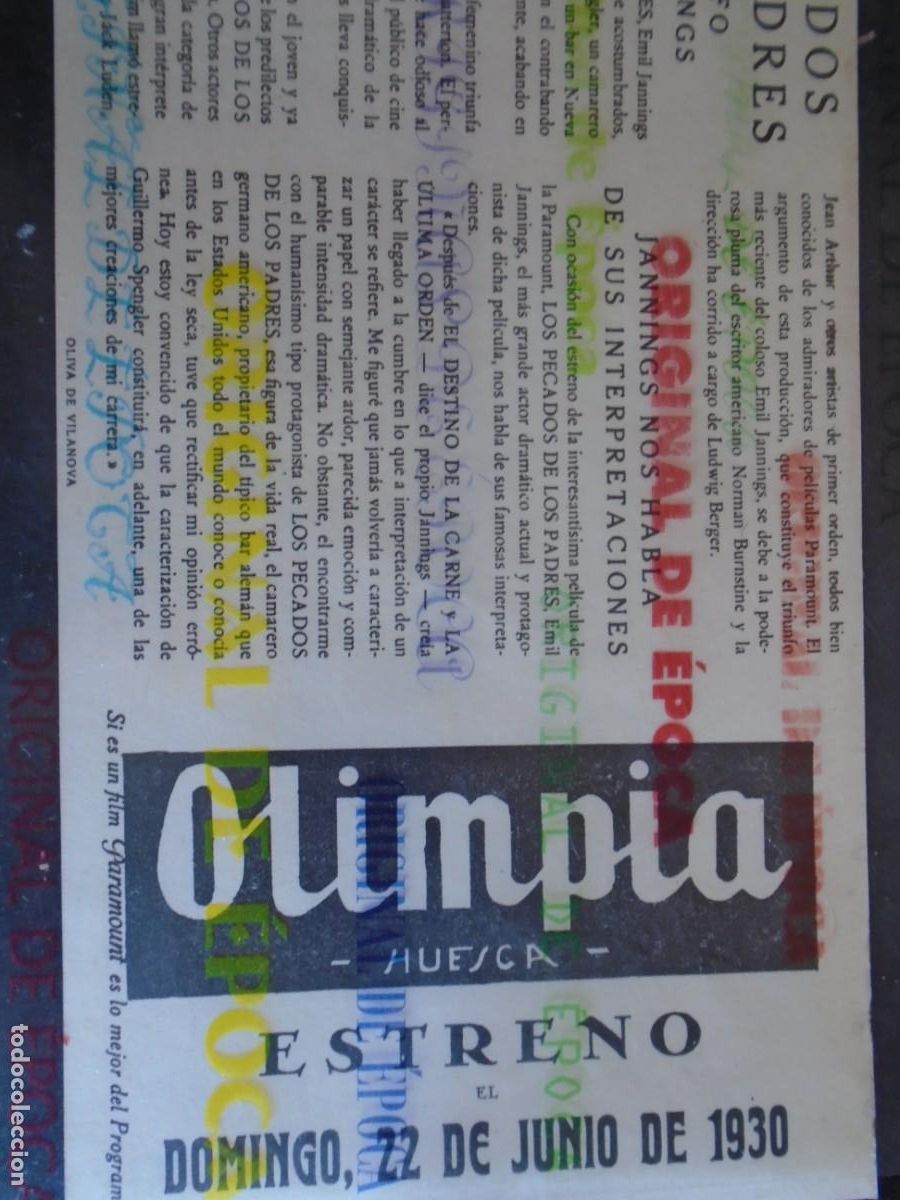 DOS
DRES
FO
NGS
ES, Emil Jannings
e acostumbrados,
gler, un camarero
un bar en Nueva
n el contrabando
nte, acabando en
femenino triunfa
anterior. El per-
hace odioso al
l público de cine
dramático de la
s lleva conquis-
n el joven y ya
e los predilectos
OS DE LOS
. Otros actores
la categoría de
gran intérprete
m llamó estre-
Jack Luden.
Jean Arthur y otros artistas de primer orden, todos bien
conocidos de los admiradores de películas Paramount. El
argumento de esta producción, que constituye el triunfo
más reciente del coloso Emil Jannings, se debe a la pode-
rosa pluma del escritor americano Norman Burnstine y la
dirección ha corrido a cargo de Ludwig Berger.
JANNINGS NOS HABLA
DE SUS INTERPRETACIONES
Con ocasión del estreno de la interesantísima película de
la Paramount, LOS PECADOS DE LOS PADRES, Emil
Jannings, el más grande actor dramático actual y protago-
nista de dicha película, nos habla de sus famosas interpreta-
ciones.
«Después de EL DESTINO DE LA CARNE y LA
ÚLTIMA ORDEN — dice el propio Jannings — creía
haber llegado a la cumbre en lo que a interpretación de un
carácter se refiere. Me figuré que jamás volvería a caracteri-
zar un papel con semejante ardor, parecida emoción y com-
parable intensidad dramática. No obstante, el encontrarme
con el humanísimo tipo protagonista de LOS PECADOS
DE LOS PADRES, esa figura de la vida real, el camarero
germano americano, propietario del típico bar alemán que
en los Estados Unidos todo el mundo conoce o conocía
antes de la ley seca, tuve que rectificar mi opinión erró-
nea. Hoy estoy convencido de que la caracterización de
Guillermo Spengler constituirá, en adelante, una de las
mejores creaciones de mi carrera.»
OLIVA DE VILANOVA
Si es un film Paramount es lo mejor del Program
Olimpia
- HUESCA -
ESTRENO
EL
DOMINGO, 22 DE JUNIO DE 1930
ORIGINAL DE ÉPOCA
ORIGINAL DE ÉPOCA
ORIGINAL DE ÉPOCA
ORIGINAL DE ÉPOCA
ORIGINAL DE ÉPOCA
todocoleccion